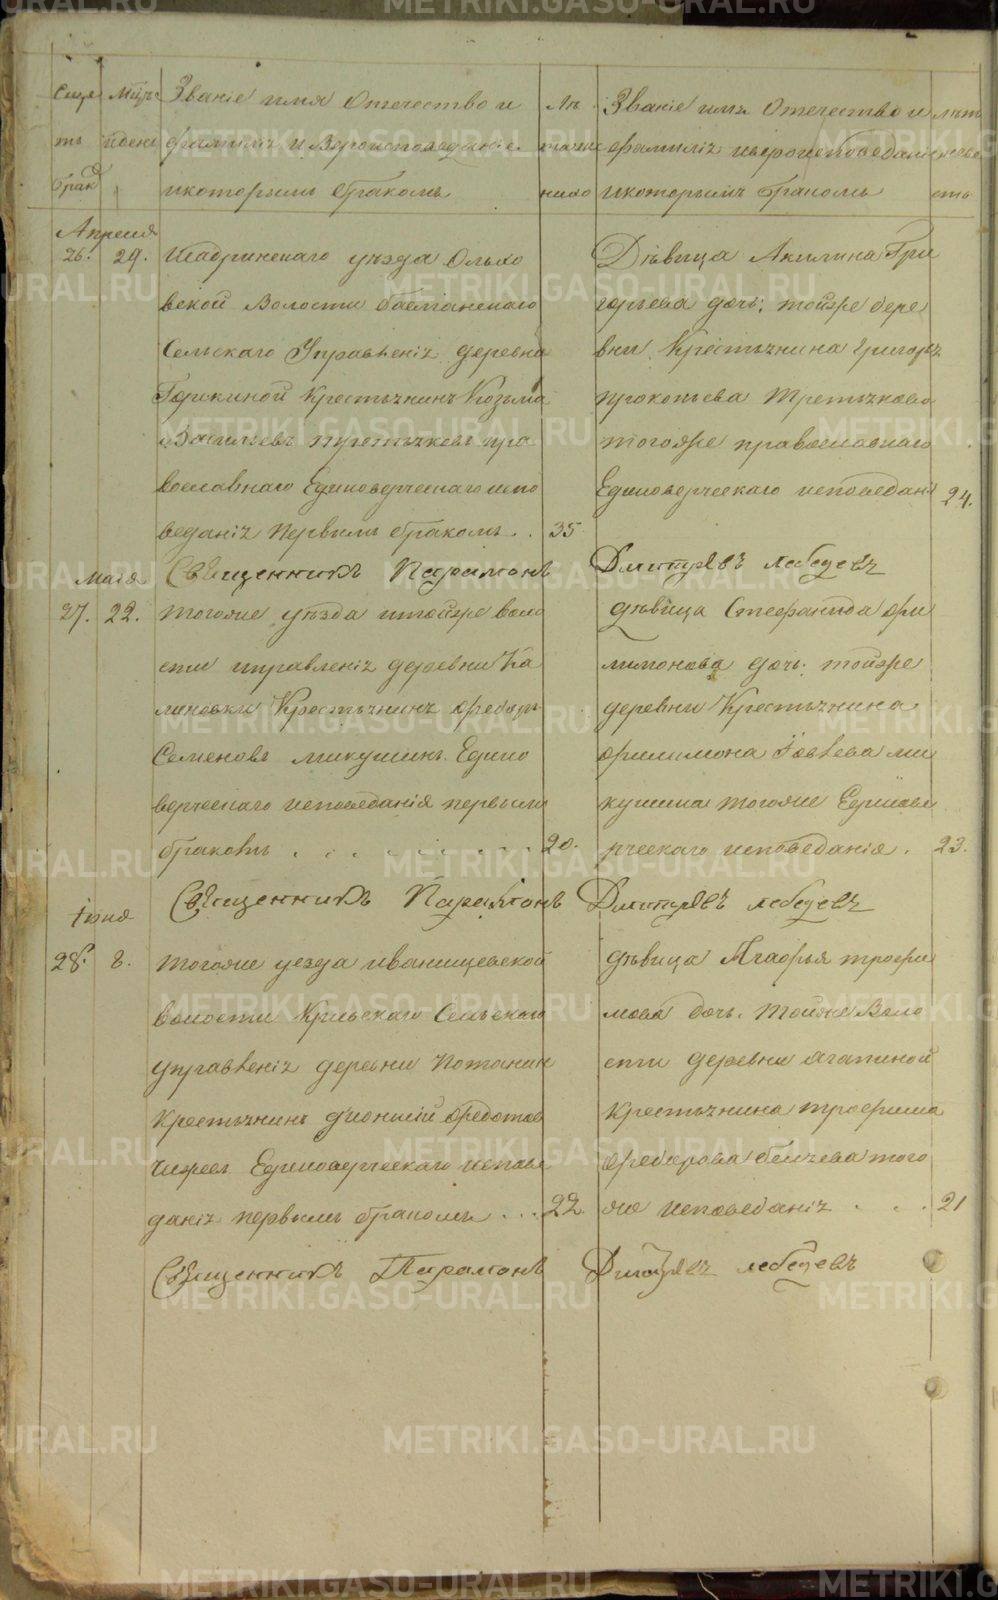 Счетъ Мѣсяцъ Званіе имя Отечество и Лѣ Званіе имя Отечество и лѣт
тъ идень фамиліҍ и Вѣроисповѣданіе таже фамиліҍ ивѣроисповеданіе невѣ
брак икоторымъ бракомъ нихо икоторымъ бракомъ сты
Апреля
26. 29. Шадринскаго уѣзда Ольхо
вской Волости басманскаго
Сельскаго Управленіҍ деревни
Горкиной Крестьҍнинъ Козьма
Васильевъ третьҍковъ пра
вославнаго Единоверческаго испо
веданіҍ Первымъ бракомъ . . 35
Дѣвица Акилина Гри
горьева дочь; тойже дере
вни Крестьҍнина Григорьҍ
прокопьева Третьҍкова
тогоже православнаго
Единоверческаго исповедані 24.
Священникъ Парамонъ Дмитревъ лебедевъ
Маія
27. 22. Тогоже уѣзда итойже воло
сти управленіҍ деревни Ка
линовки Крестьҍнинъ Федоръ
Семеновъ микушинъ Едино
верческаго исповеданія первымъ
бракомъ . . . . . . . . . 20.
дѣвица Стефанида фи
лимонова дочь. тойже
деревни Крестьҍнина
филимона Іовлева ми
кушина тогоже Единове
рческаго исповеданія . 23.
Священникъ Парамонъ Дмитревъ лебедевъ
Іюня
28. 8. тогоже уезда иванищевской
волости Кривскаго Сельскаго
управленіҍ деревни Потанин
Крестьҍнинъ дионисій Федотов
Единоверческаго испове
даніҍ первымъ бракомъ . . . 22
дѣвица Агафья трофи
мова дочь. Тойже Воло
сти деревни Агапиной
Крестьҍнина трофима
федорова бѣлчева того
же исповеданіҍ . . . 21
Священникъ Парамонъ Дмитревъ лебедевъ
METRIKI.GASO-URAL.RU